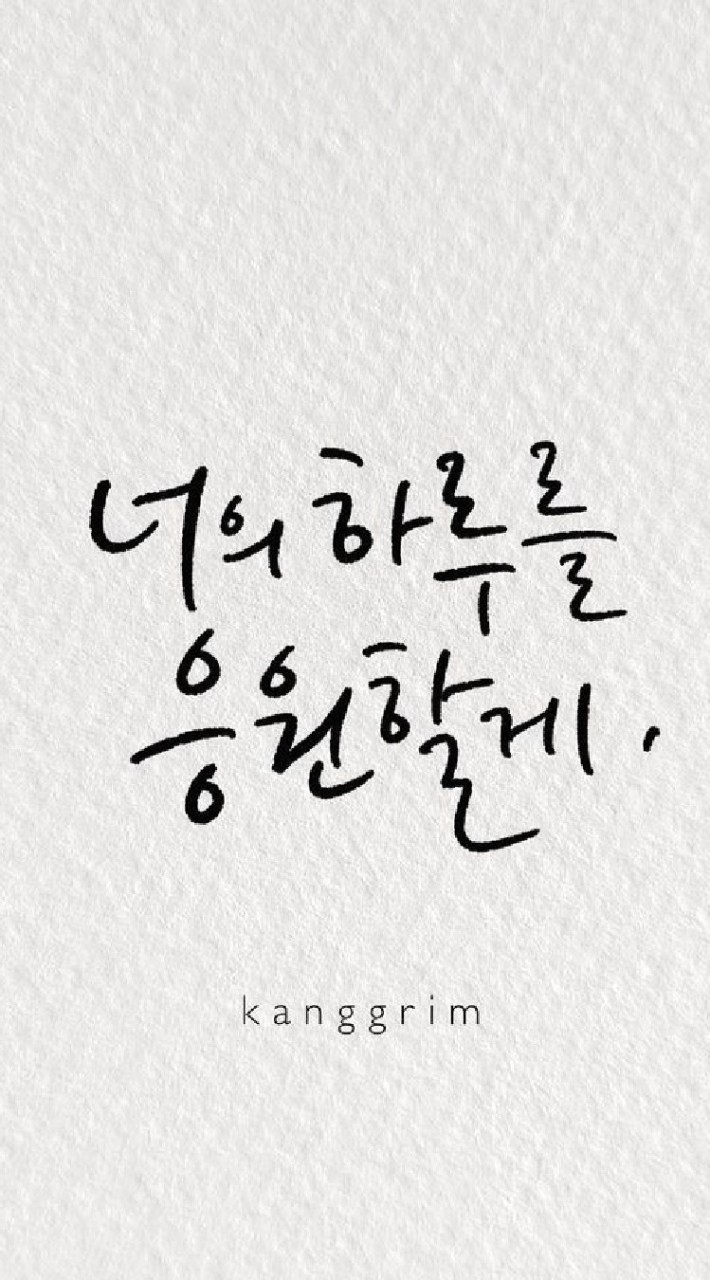 너의 하루를
응원할게.
kanggrim